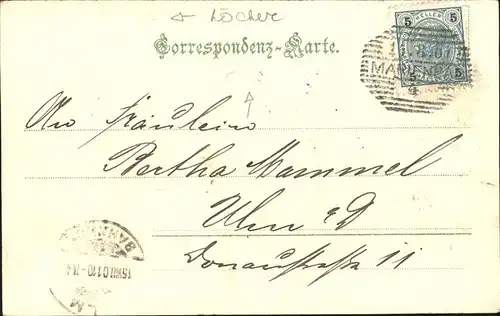 Löcher
Correspondenz-Karte.
5 HELLER 5
MARIENBAD
5
An Fräulein
Bertha Mammel
Ulm a/D
Donaustraße 11